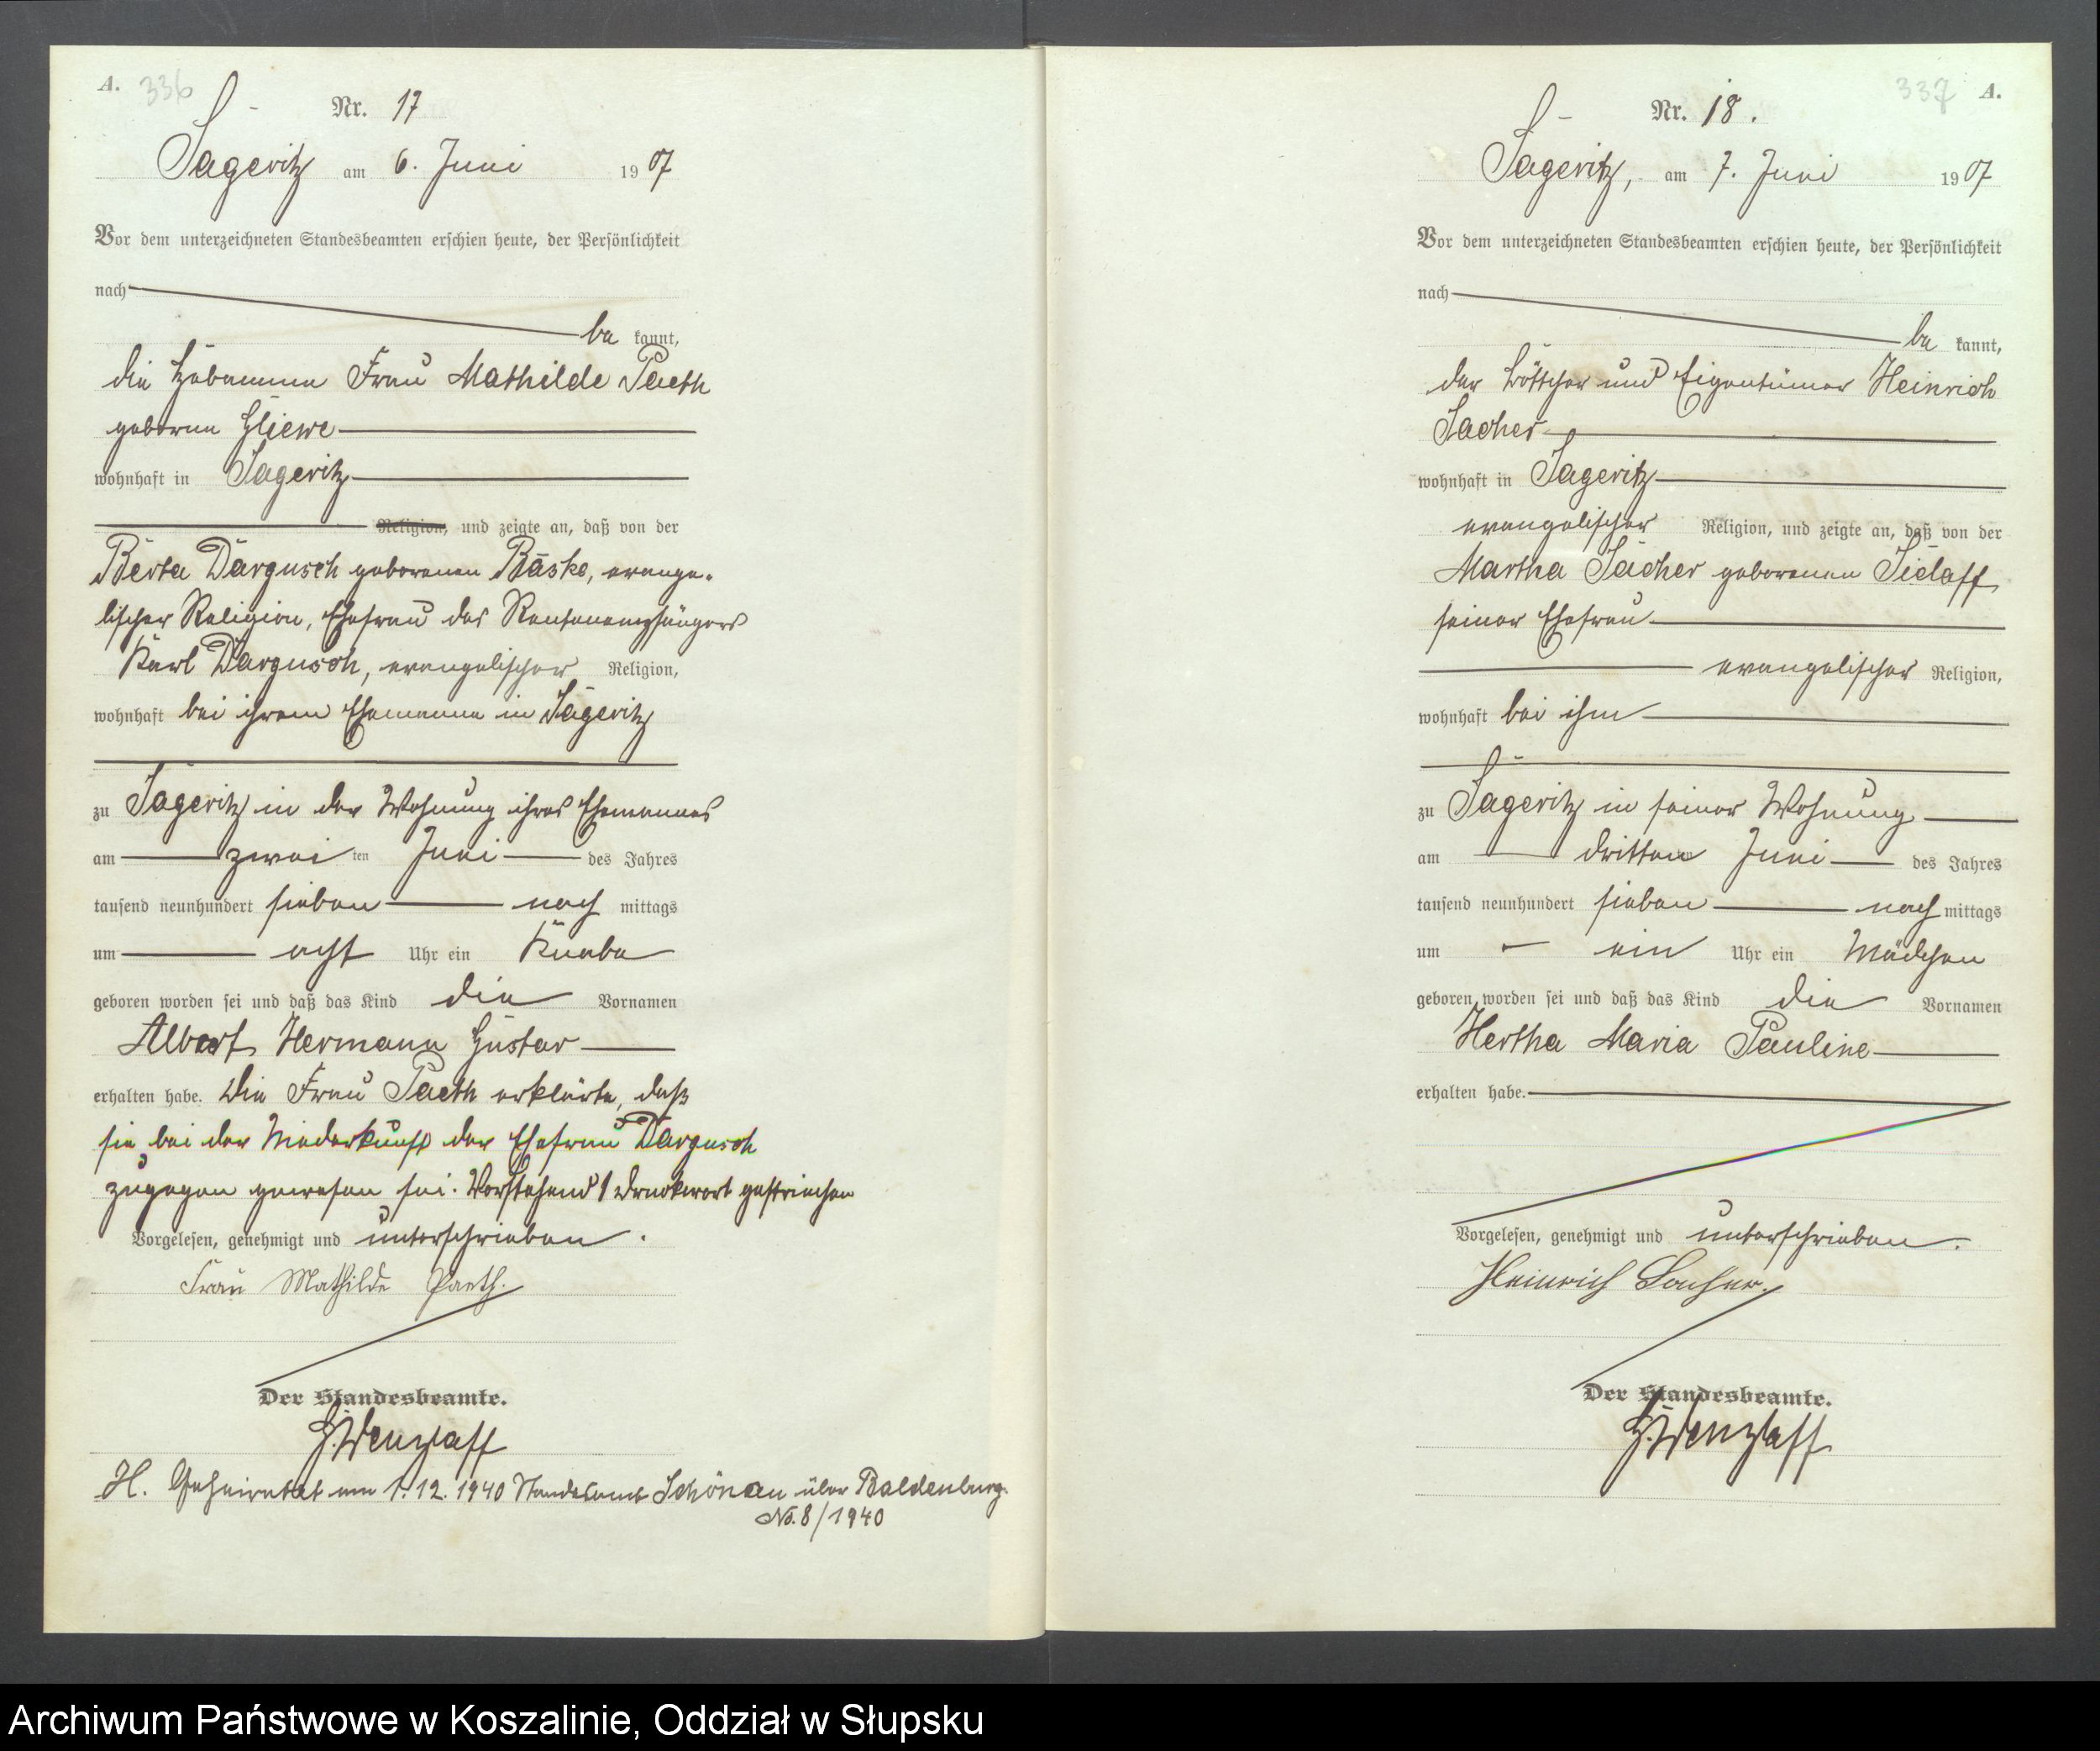 A. 336
Nr. 17
Sageritz am 6. Juni 1907
Vor dem unterzeichneten Standesbeamten erschien heute, der Persönlichkeit
nach
be kannt,
die Hebamme Frau Mathilde Paeth
geborne Gliewe
wohnhaft in Sageritz
Religion, und zeigte an, daß von der
Berta Dargusch geborenen Baske, evange-
lischer Religion, Ehefrau des Rentenempfängers
Karl Dargusch, evangelischer Religion,
wohnhaft bei ihrem Ehemanne in Sageritz
zu Sageritz in der Wohnung ihres Ehemannes
am zwei ten Juni des Jahres
tausend neunhundert sieben nach mittags
um acht Uhr ein Knabe
geboren worden sei und daß das Kind die Vornamen
Albert Hermann Gustav
erhalten habe. Die Frau Paeth erklärte, daß
sie bei der Niederkunft der Ehefrau Dargusch
zugegen gewesen sei. Vorstehend 1 Druckwort gestrichen
Vorgelesen, genehmigt und unterschrieben.
Frau Mathilde Paeth.
Der Standesbeamte.
G. Wenzlaff
H. Geheiratet am 1.12.1940 Standesamt Schönau über Baldenburg
No. 8/1940
337 A.
Nr. 18.
Sageritz, am 7. Juni 1907
Vor dem unterzeichneten Standesbeamten erschien heute, der Persönlichkeit
nach
be kannt,
der Böttcher und Eigentümer Heinrich
Sacher
wohnhaft in Sageritz
evangelischer Religion, und zeigte an, daß von der
Martha Sacher geborenen Sielaff,
seiner Ehefrau
evangelischer Religion,
wohnhaft bei ihm
zu Sageritz in seiner Wohnung
am dritten Juni des Jahres
tausend neunhundert sieben nach mittags
um ein Uhr ein Mädchen
geboren worden sei und daß das Kind die Vornamen
Hertha Maria Pauline
erhalten habe.
Vorgelesen, genehmigt und unterschrieben.
Heinrich Sacher.
Der Standesbeamte.
G. Wenzlaff
Archiwum Państwowe w Koszalinie, Oddział w Słupsku